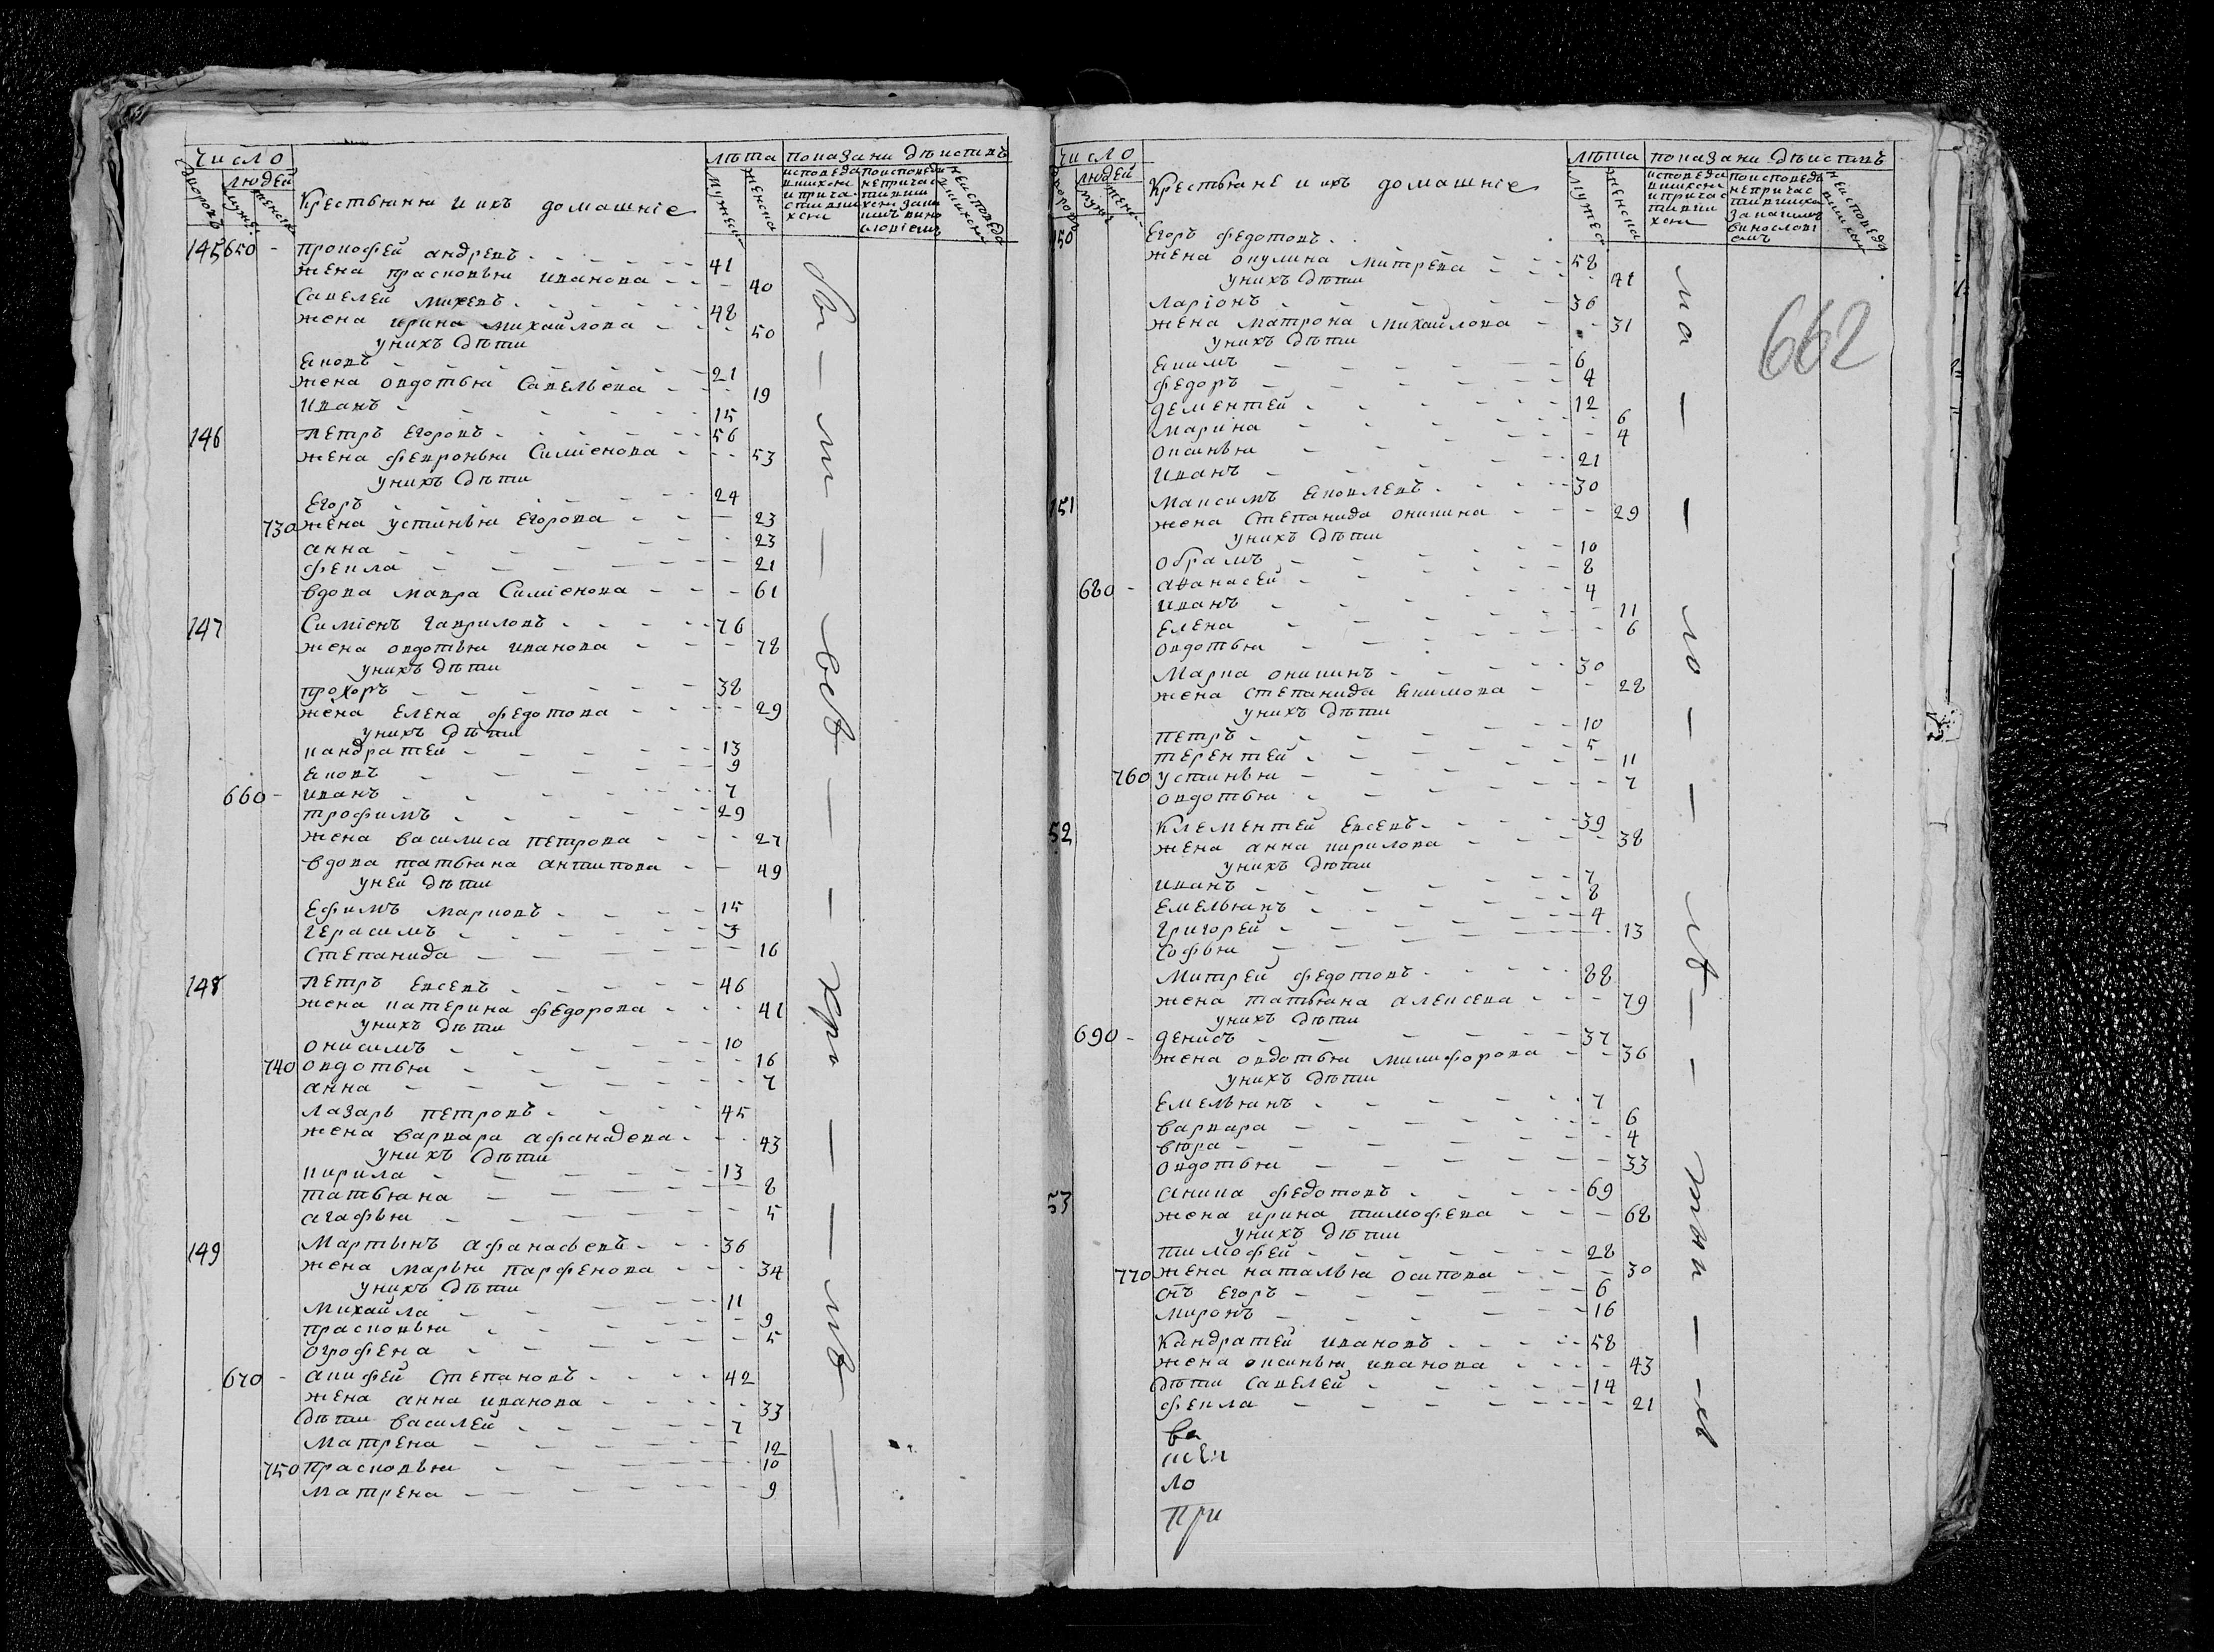 Число
лѣта показани дѣиствъ
дворовъ
людей
мужес
женска
Крестьяня и ихъ домашніе
мужеска
женска
исповеда
вшихся
и прича
стивши
хся
145 650 - прокофей андревъ - 41
жена прасковья иванова - 40
Савелей михевъ - 48
жена ирина михайлова - 50
у нихъ дѣти
яковъ - 21
жена овдотья Савельева - 19
иванъ - 15
146 петръ егоровъ - 56
жена февронья Симіенова - 53
у нихъ дѣти
Егоръ - 24
730 жена устинья Егорова - 23
анна - 23
фекла - 21
вдова мавра Симіенова - 61
147 Симіенъ гавриловъ - 76
жена овдотья иванова - 78
у нихъ дѣти
прохоръ - 38
жена елена федотова - 29
у нихъ дѣти
кандратей - 13
яковъ - 9
660 - иванъ - 7
трофимъ - 29
жена василиса петрова - 27
вдова татьяна антипова - 49
у ней дѣти
Ефимъ марковъ - 15
герасимъ - 3
степанида - 16
148 петръ Евсевъ - 46
жена катерина федорова - 41
у нихъ дѣти
онисимъ - 10
740 овдотья - 16
анна - 7
лазарь петровъ - 45
жена варвара афанасева - 43
у нихъ дѣти
кирила - 13
татьяна - 8
агафья - 5
149 Мартынъ афанасьевъ - 36
жена марья парфенова - 34
у нихъ дѣти
михайла - 11
прасковья - 9
огрофена - 5
670 - акифей степановъ - 42
жена анна иванова - 33
дѣти василей - 7
матрена - 12
750 прасковья - 10
матрена - 9
Число
лѣта показани дѣиствъ
дворовъ
людей
мужес
женс
Крестьяне и ихъ домашніе
мужес
женска
исповеда
вшихся
и причас
тивши
хся
662
150 Егоръ федотовъ - 58
жена окулина митрева - 71
у нихъ дѣти
ларіонъ - 36
жена матрона михайлова - 31
у нихъ дѣти
якимъ - 6
федоръ - 4
дементей - 12
марина - 6
оксинья - 4
иванъ - 21
151 максимъ яковлевъ - 30
жена степанида оникина - 29
у нихъ дѣти
обрамъ - 10
680 - аѳанасей - 8
иванъ - 4
елена - 11
овдотья - 6
Марка оникинъ - 30
жена степанида якимова - 28
у нихъ дѣти
петръ - 10
терентей - 5
760 устинья - 11
овдотья - 7
52 Клементей Евсевъ - 39
жена анна кирилова - 38
у нихъ дѣти
иванъ - 7
емельянъ - 8
григорей - 4
софья - 13
Митрей федотовъ - 88
жена татьяна алексева - 79
у нихъ дѣти
690 - денисъ - 37
жена овдотья микифорова - 36
у нихъ дѣти
емельянъ - 7
варвара - 6
вѣра - 4
овдотья - 33
53 аника федотовъ - 69
жена ирина тимофева - 68
у нихъ дѣти
тимофей - 28
770 жена наталья осипова - 30
снъ Егоръ - 6
миронъ - 16
Кандратей ивановъ - 58
жена оксинья иванова - 43
дѣти Савелей - 14
фекла - 21
ло
при